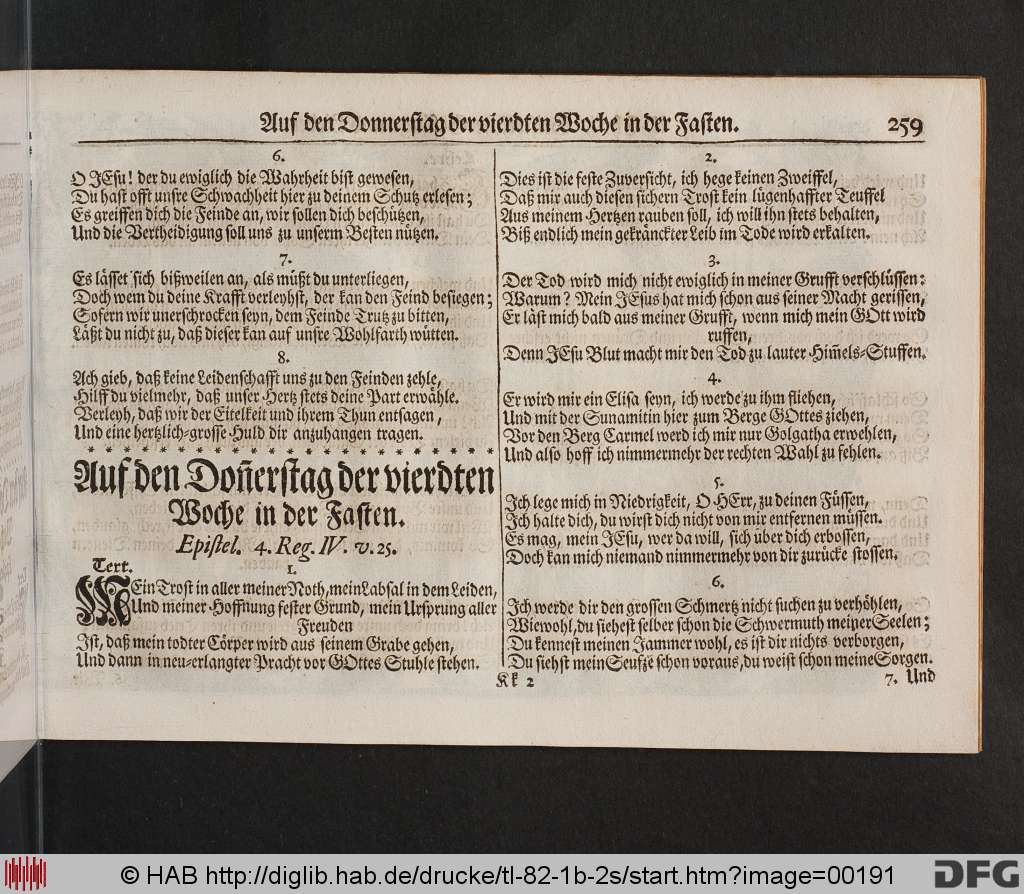 Auf den Donnerstag der vierdten Woche in der Fasten. 259
6.
O JEsu! der du ewiglich die Wahrheit bist gewesen,
Du hast offt unsre Schwachheit hier zu deinem Schutz erlesen;
Es greiffen dich die Feinde an, wir sollen dich beschützen,
Und die Vertheidigung soll uns zu unserm Besten nützen.
7.
Es lässet sich bißweilen an, als müßt du unterliegen,
Doch wem du deine Krafft verleyhst, der kan den Feind besiegen;
Sofern wir unerschrocken seyn, dem Feinde Trutz zu bitten,
Läßt du nicht zu, daß dieser kan auf unsre Wohlfarth wütten.
8.
Ach gieb, daß keine Leidenschafft uns zu den Feinden zehle,
Hilff du vielmehr, daß unser Hertz stets deine Part erwähle.
Verleyh, daß wir der Eitelkeit und ihrem Thun entsagen,
Und eine hertzlich-grosse Huld dir anzuhangen tragen.
* * * * * * * * * * * * * * * * * * * * * * * *
Auf den Don̄erstag der vierdten
Woche in der Fasten.
Epistel. 4. Reg. IV. v. 25.
Tert. 1.
MEin Trost in aller meiner Noth, mein Labsal in dem Leiden,
Und meiner Hoffnung fester Grund, mein Ursprung aller
Freuden
Ist, daß mein todter Cörper wird aus seinem Grabe gehen,
Und dann in neu-erlangter Pracht vor GOttes Stuhle stehen.
2.
Dies ist die feste Zuversicht, ich hege keinen Zweiffel,
Daß mir auch diesen sichern Trost kein lügenhaffter Teuffel
Aus meinem Hertzen rauben soll, ich will ihn stets behalten,
Biß endlich mein gekränckter Leib im Tode wird erkalten.
3.
Der Tod wird mich nicht ewiglich in meiner Grufft verschlüssen:
Warum? Mein JEsus hat mich schon aus seiner Macht gerissen,
Er läst mich bald aus meiner Grufft, wenn mich mein GOtt wird
ruffen,
Denn JEsu Blut macht mir den Tod zu lauter Him̄els-Stuffen.
4.
Er wird mir ein Elisa seyn, ich werde zu ihm fliehen,
Und mit der Sunamitin hier zum Berge GOttes ziehen,
Vor den Berg Carmel werd ich mir nur Golgatha erwehlen,
Und also hoff ich nimmermehr der rechten Wahl zu fehlen.
5.
Ich lege mich in Niedrigkeit, O HErr, zu deinen Füssen,
Ich halte dich, du wirst dich nicht von mir entfernen müssen.
Es mag, mein JEsu, wer da will, sich über dich erbossen,
Doch kan mich niemand nimmermehr von dir zurücke stossen.
6.
Ich werde dir den grossen Schmertz nicht suchen zu verhöhlen,
Wiewohl, du siehest selber schon die Schwermuth meiner Seelen;
Du kennest meinen Jammer wohl, es ist dir nichts verborgen,
Du siehst mein Seufze schon voraus, du weist schon meine Sorgen.
Kk 2
7. Und
© HAB http://diglib.hab.de/drucke/tl-82-1b-2s/start.htm?image=00191
DFG